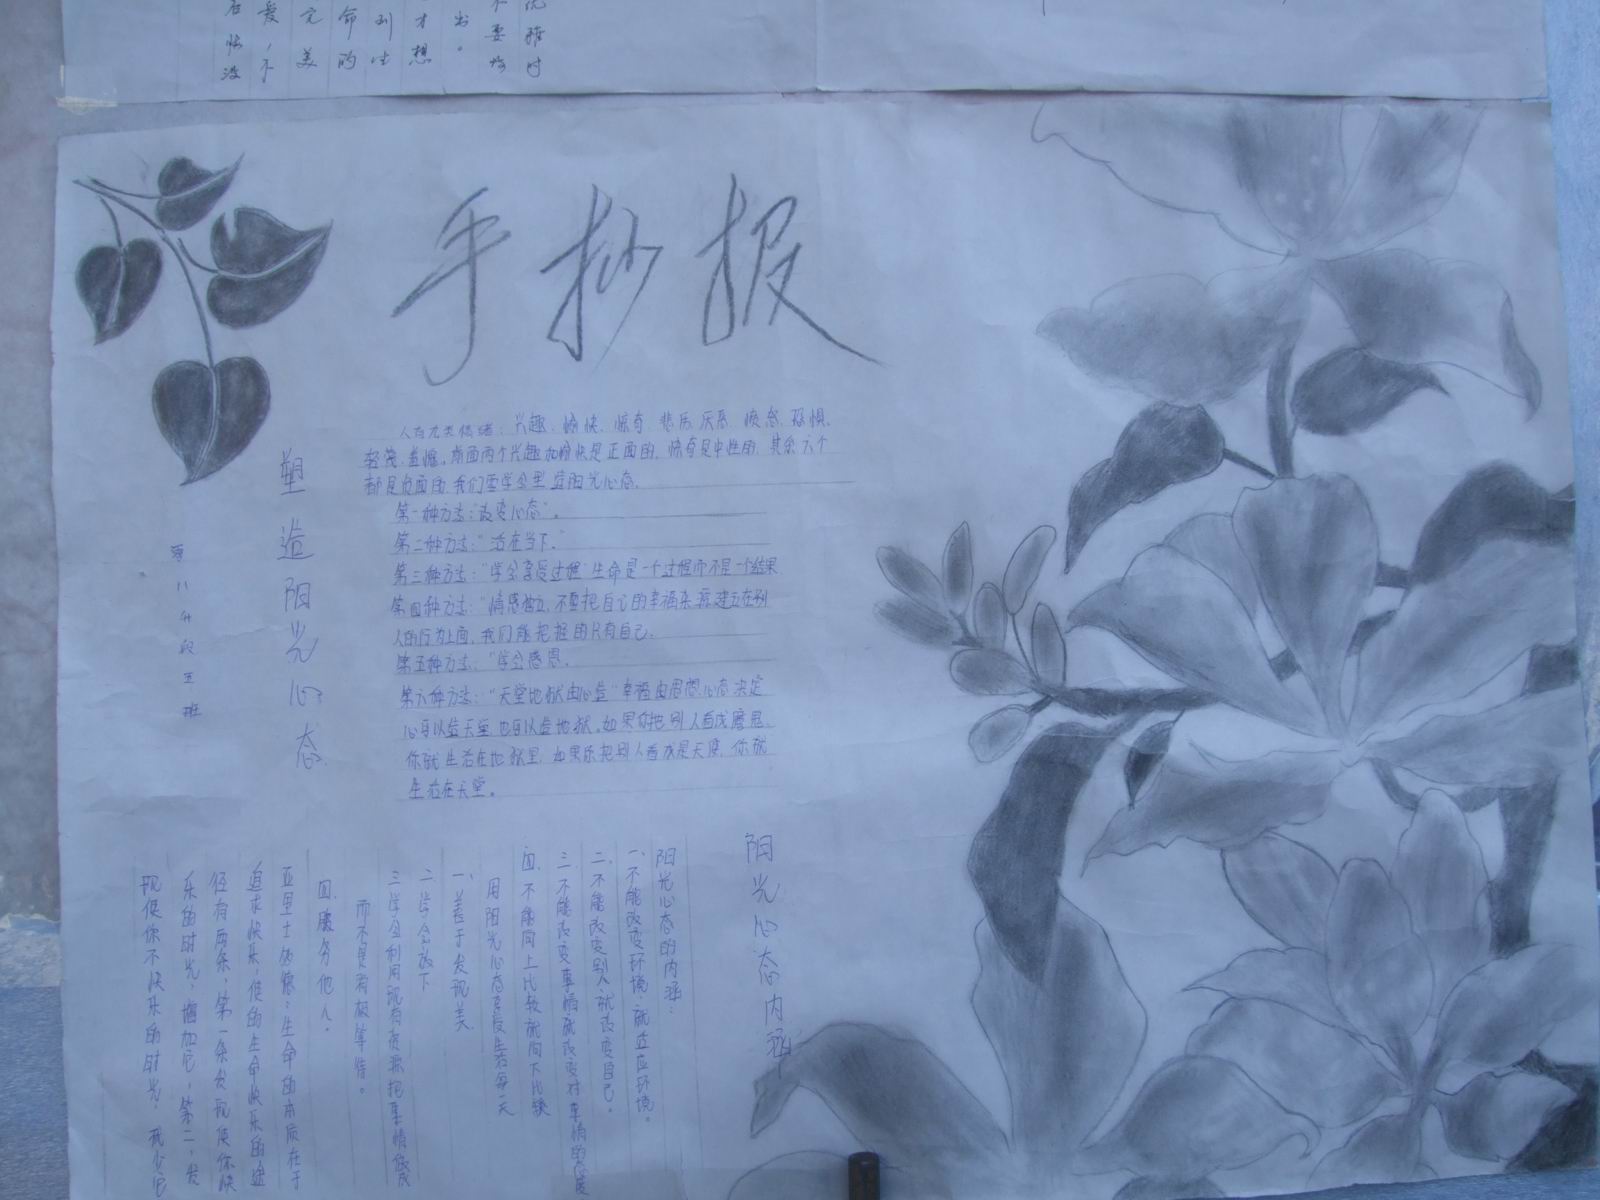 手抄报
塑造阳光心态
人有九类情绪：兴趣、愉快、惊奇、悲伤、厌恶、愤怒、恐惧、
轻蔑、羞愧。前面两个兴趣和愉快是正面的，惊奇是中性的，其余六个
都是负面的，我们要学会塑造阳光心态。
第一种方法：“改变心态”。
第二种方法：“活在当下。”
第三种方法：“学会享受过程”生命是一个过程而不是一个结果
第四种方法：“情感独立，不要把自己的幸福来源建立在别
人的行为上面，我们能把握的只有自己。
第五种方法：“学会感恩。
第六种方法：“天堂地狱由心造”幸福由思想、心态决定
心可以造天堂，也可以造地狱。如果你把别人看成魔鬼，
你就生活在地狱里，如果你把别人看成是天使，你就
生活在天堂。
阳光心态内涵
阳光心态的内涵：
一、不能改变环境，就适应环境。
二、不能改变别人，就改变自己。
三、不能改变事情就改变对事情的态度
四、不能向上比较就向下比较
用阳光心态享受生活每一天
一、善于发现美
二、学会放下
三、学会利用现有资源把事情做成
而不是等情。
四、服务他人。
亚里士多德：生命的本质在于
追求快乐，使的生命快乐的途
径有两条，第一条发现使你快
乐的时光，增加它，第二，发
现使你不快乐的时光，减少它